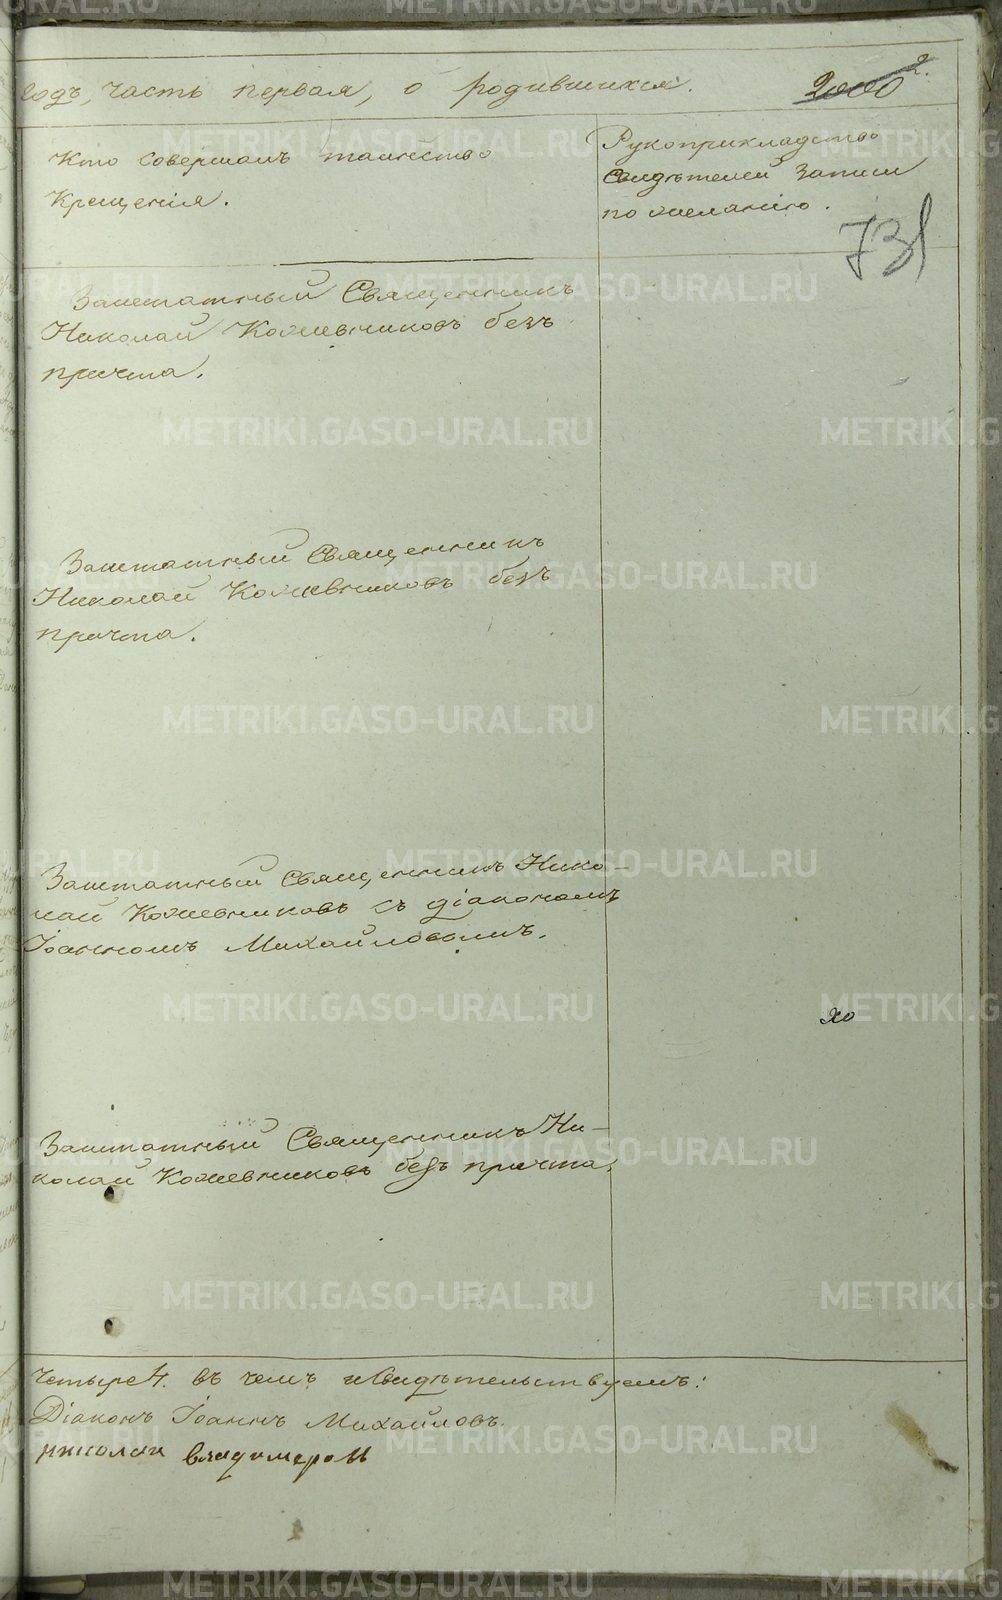 годъ, часть первая, о родившихся. 2.
Кто совершалъ таинство
Крещенія.
Рукоприкладство
свидѣтелей записи
по желанію.
731
Заштатный Священникъ
Николай Кожевниковъ безъ
причта.
Заштатный Священникъ
Николай Кожевниковъ безъ
причта.
Заштатный Священникъ Нико-
лай Кожевниковъ съ діакономъ
Іоанномъ Михайловымъ.
Заштатный Священникъ Ни-
колай Кожевниковъ безъ причта.
четыре 4. въ чемъ и свидѣтельствуемъ:
Діаконъ Іоаннъ Михайловъ.
николаи
METRIKI.GASO-URAL.RU